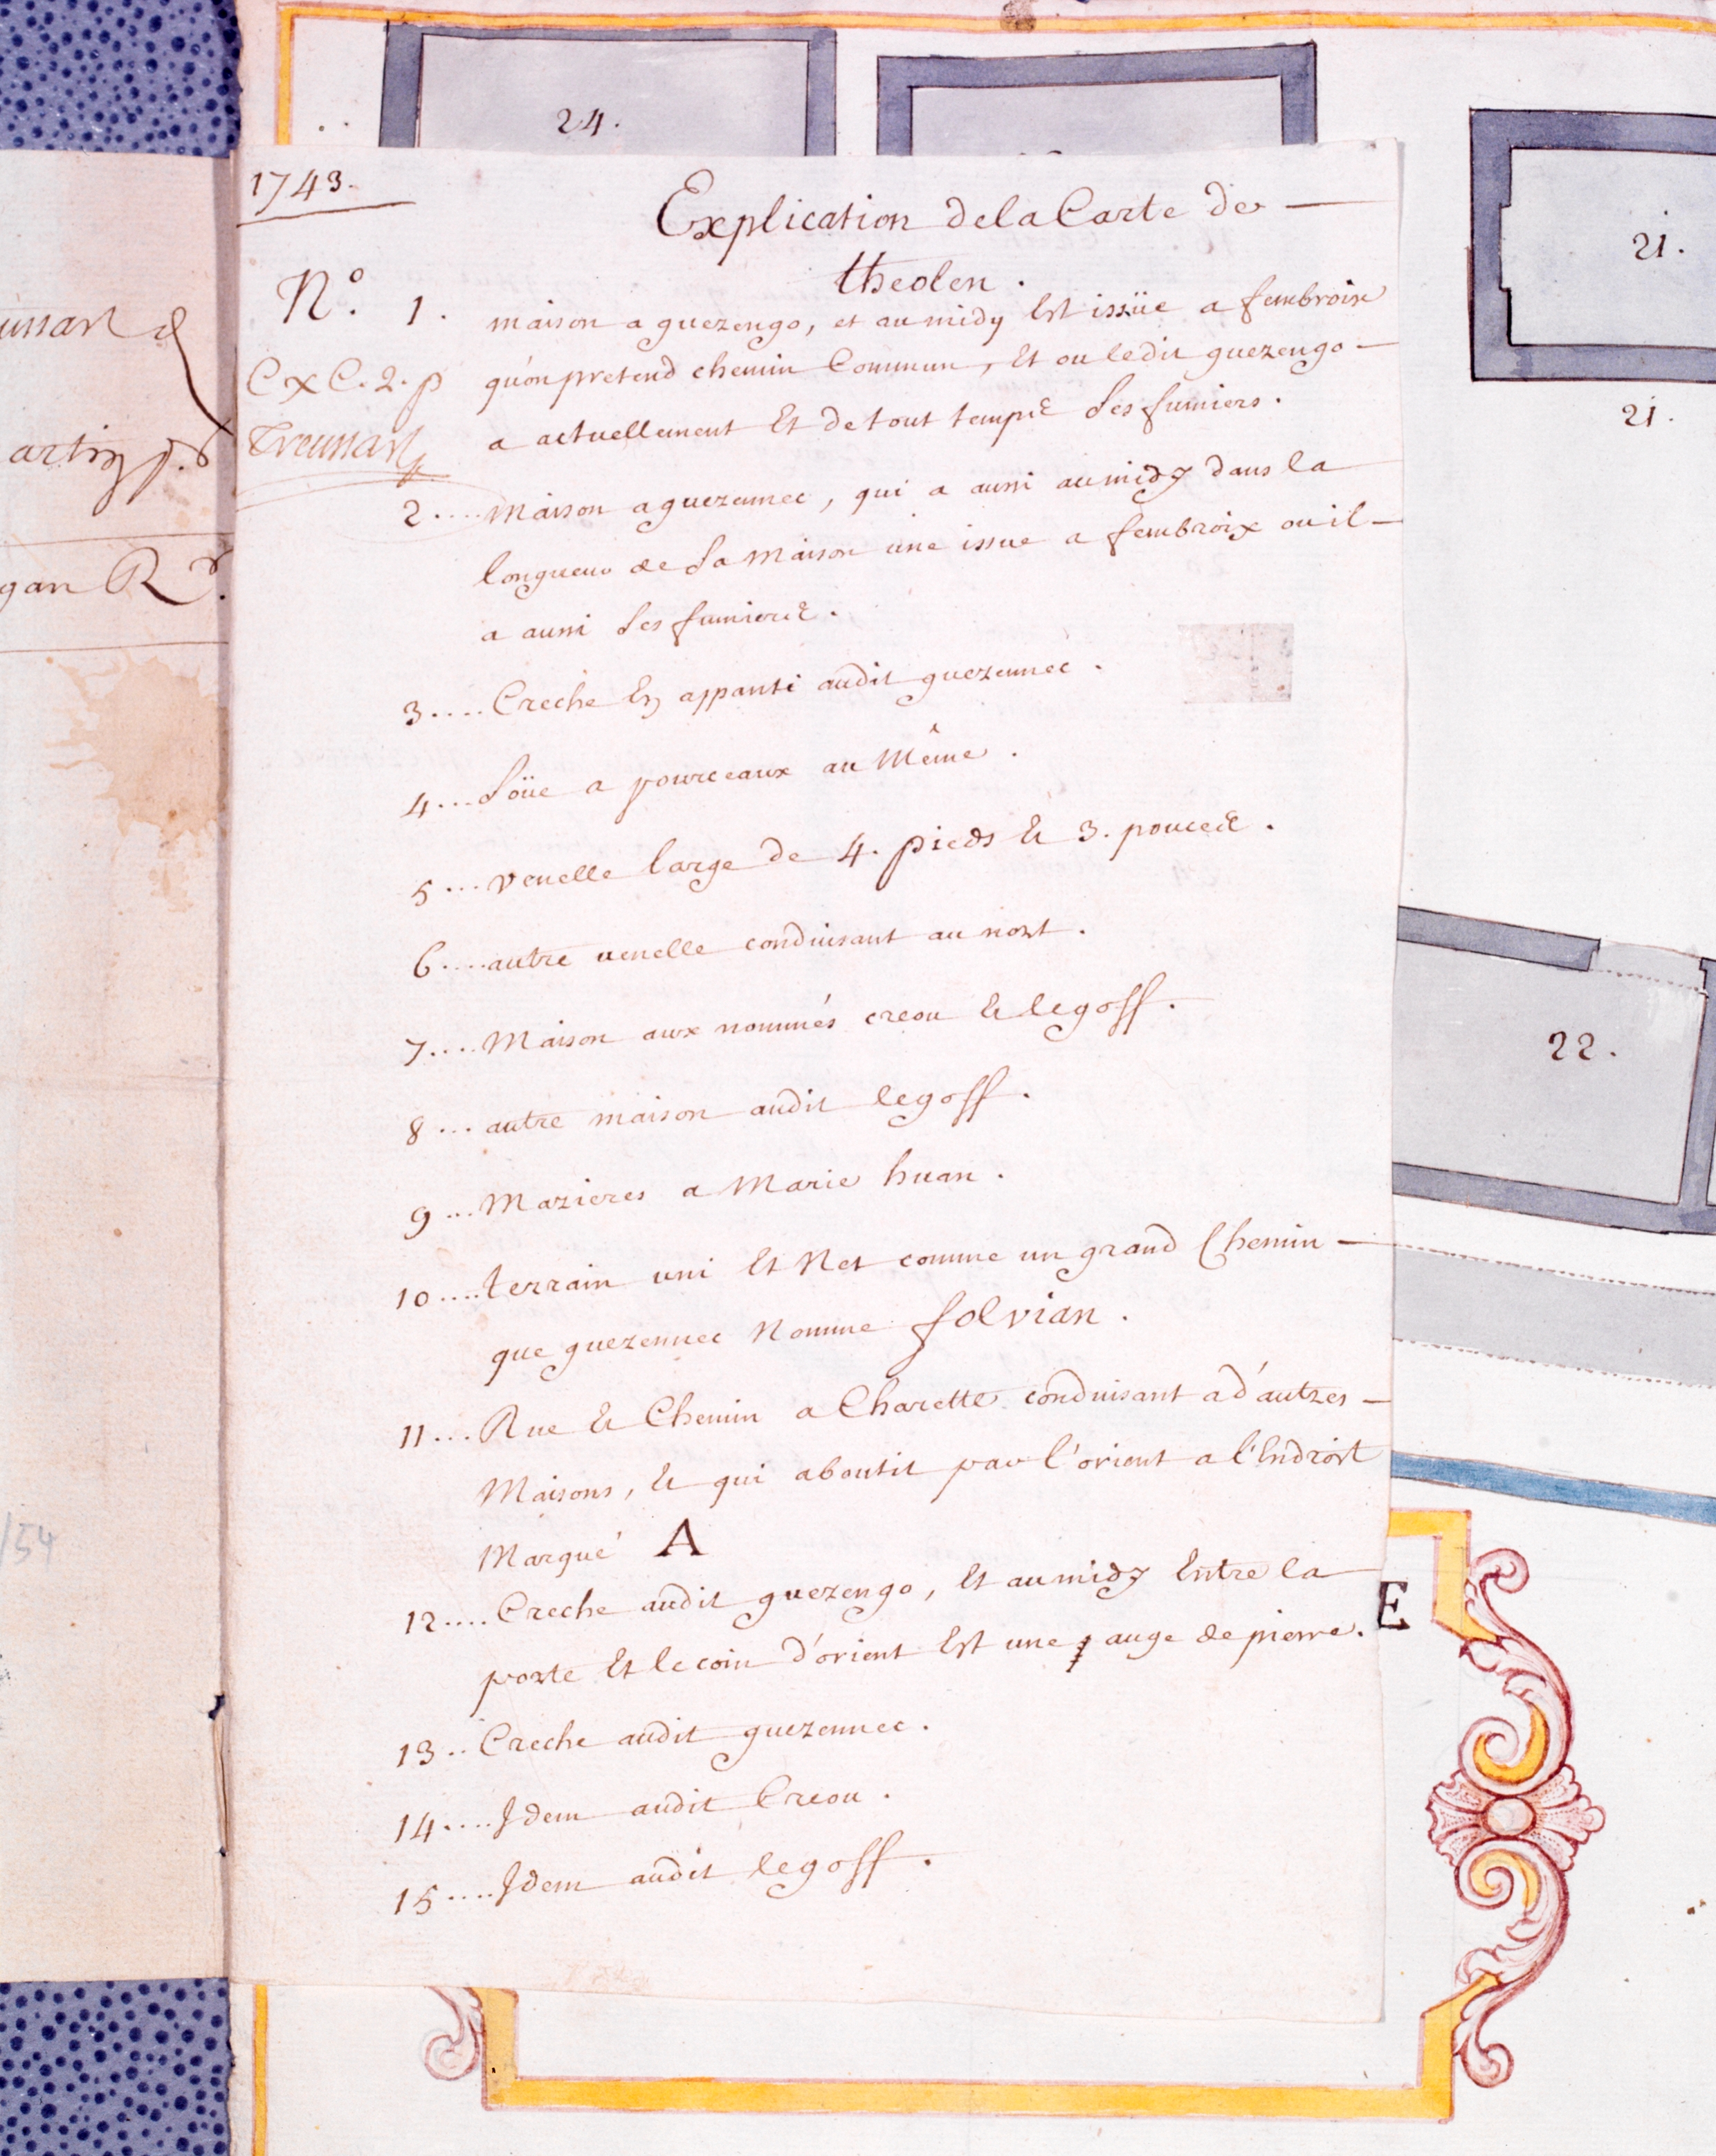 24.
21.
21.
22.
E
1743.
Explication de la Carte de —
theolen.
N.° 1. maison a guezengo, et au midy Est issüe a fembroix
qu'on pretend chemin Commun, Et ou ledit guezengo —
a actuellement Et de tout temps Ses fumiers.
C x C. 2. p
Treussart
2.... Maison a guezennec, qui a aussi au midy dans la
longueur de Sa Maison une issue a fembroix ou il —
a aussi Ses fumiers.
3.... Creche En appanti audit guezennec.
4... Soüe a pourceaux au Même.
5... venelle large de 4. pieds & 3. pouces.
6.... autre venelle conduisant au nort.
7.... Maison aux nommés creou & legoff.
8... autre maison audit legoff.
9... Mazieres a Marie huan.
10.... terrain uni Et Net comme un grand Chemin —
que guezennec Nomme folvian.
11... Rue & Chemin a Charette conduisant a d'autres —
Maisons, & qui aboutit par l'orient a l'Endroit
Marqué A
12.... Creche audit guezengo, Et au midy Entre la
porte Et le coin d'orient Est une auge de pierre.
13.. Creche audit guezennec.
14.... Idem audit Creou.
15.... Idem audit legoff.
ussart &
gan R
/54